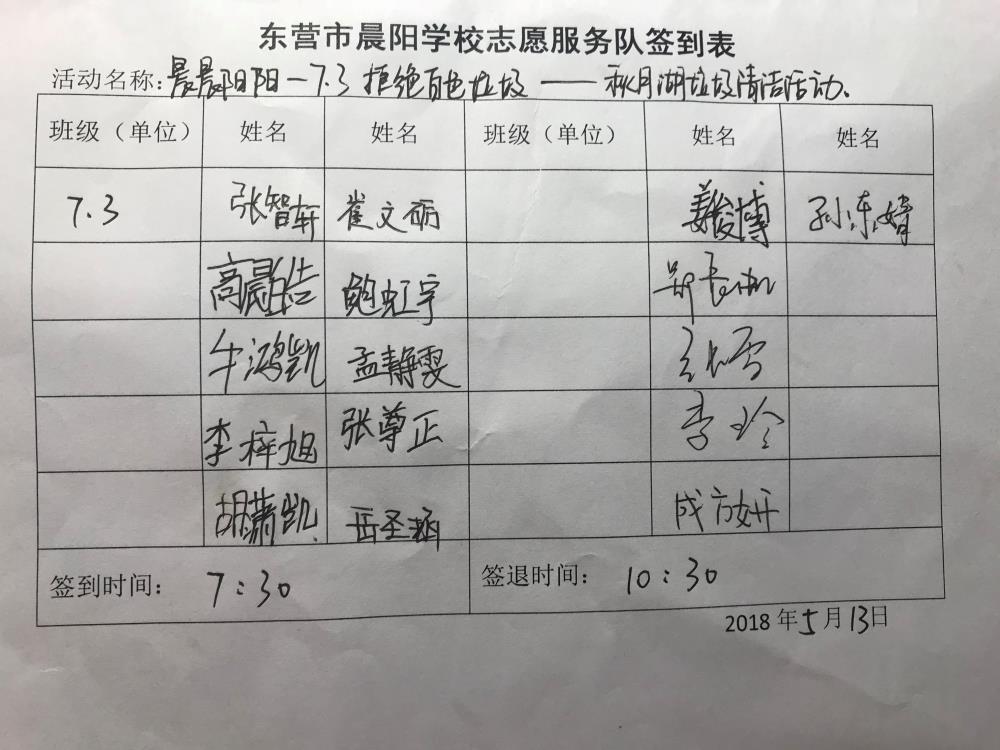 东营市晨阳学校志愿服务队签到表
活动名称:晨晨阳阳—7.3 拒绝白色垃圾 —— 秋月湖垃圾清洁活动.
班级（单位） 姓名 姓名 班级（单位） 姓名 姓名
7.3 张智轩 崔文砺 姜俊博 孙东婧
高晨皓 鲍虹宇
牛鸿凯 孟静雯 张雪
李梓旭 张尊正 李玲
胡潇凯 岳圣涵 成方妍
签到时间： 7:30 签退时间： 10:30
2018 年 5 月 13 日